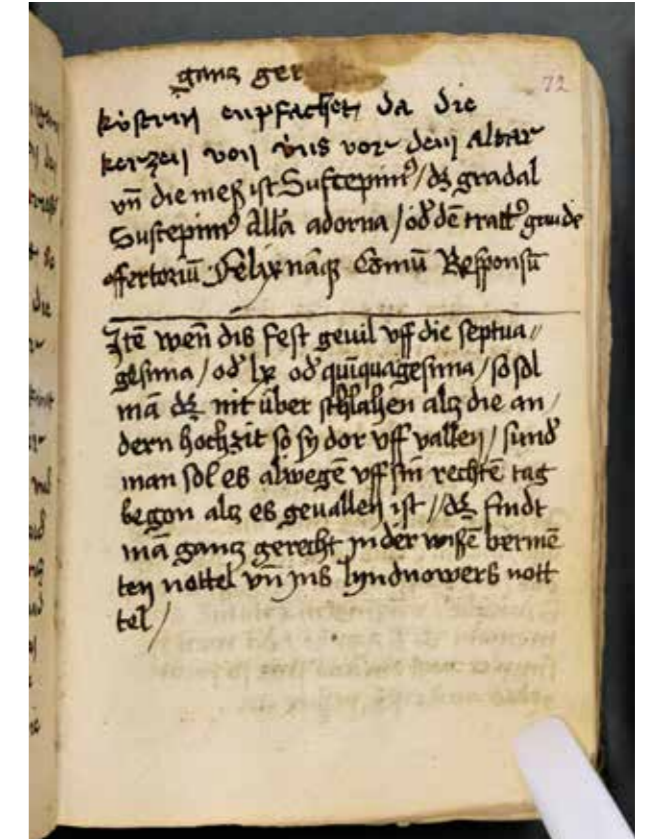 ganz ger
72
kústrin enpfachet da die
kerzen von v́ns vor dem altar
vn̄ die meß ist Suscepim⁹ / dz gradal
Suscepim⁹ Alla adorna / od' dē tratt⁹ gaude
offertoriū felix namq; Cōmū Responsū
Itē wen̄ dis fest geuil vff die septua //
gesima / od' lx od' quīquagesima / so sol
mā dz nit über schlahen alz die an /
dern hochzit so sy dor vff vallen / sund'
man sol es alwegē vff sin rechtē tag
begon alz es geuallen ist // dz findt
mā ganz gerecht in der wisē bermē
ten nottel vn̄ ins lyndnowers nott
tel /